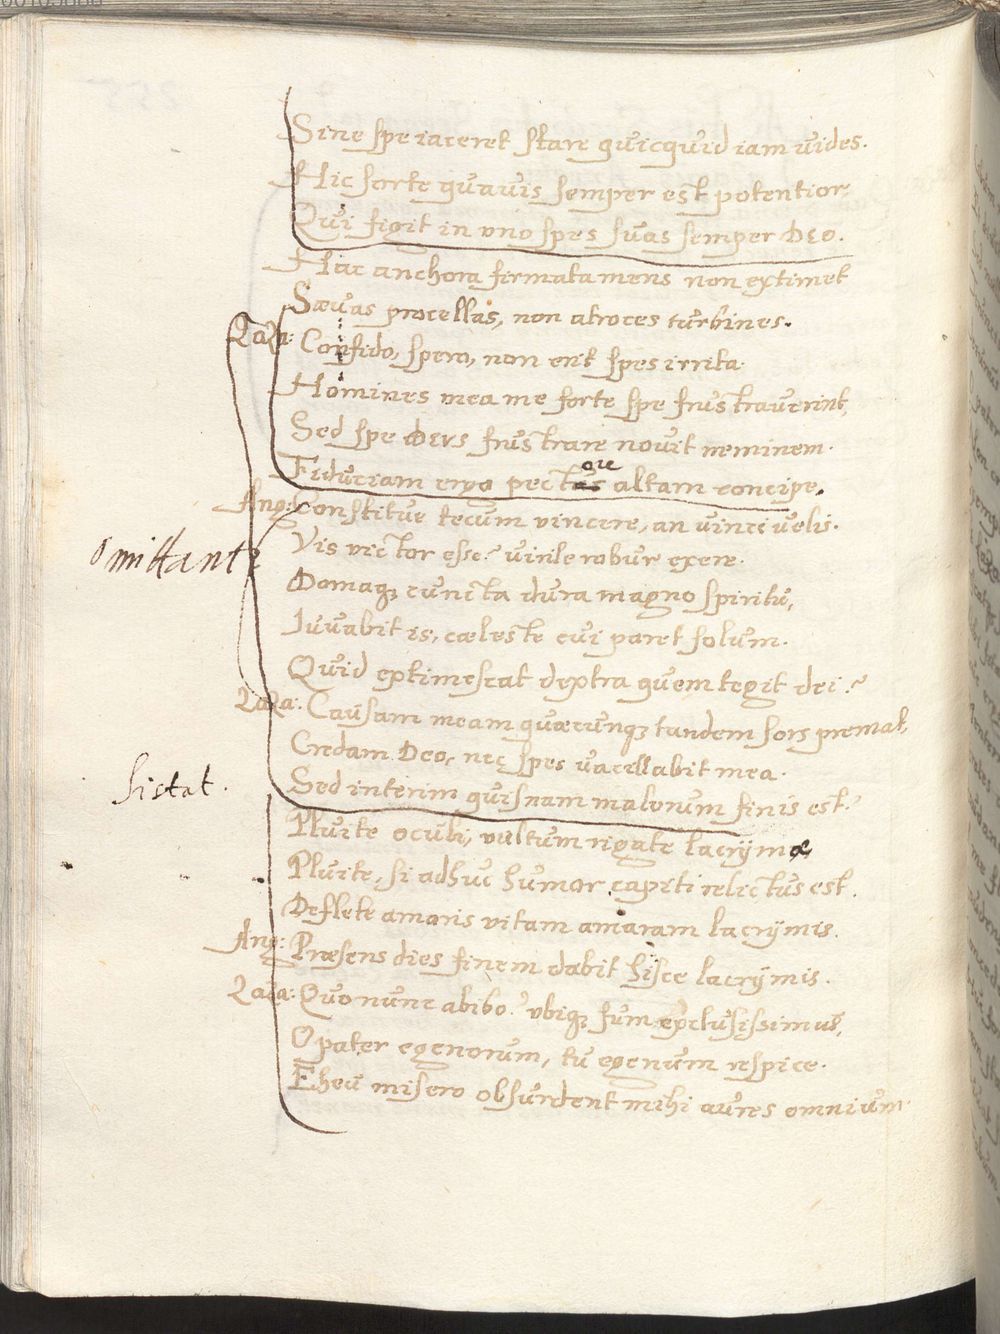 Sine spe iaceret stare quicquid iam uides.
Hic forte quauis semper est potentior,
Qui figit in uno spes suas semper Deo.
Hac anchora firmata mens non extimet
Sæuas procellas, non atroces turbines.
Laza: Confido, spero, non erit spes irrita.
Homines mea me forte spe frustrauerint,
Sed spe Deus frustrare nouit neminem.
Fiduciam ergo pectore altam concipe.
Ang: Constitue tecum vincere, an vinci velis.
Vis victor esse? virile robur exere.
omittantr
Domaq; cuncta dura magno spiritu,
Iuuabit is, cæleste cui paret solum.
Quid extimescat dextra quem tegit dei?
Laza: Causam meam quæcunq; tandem sors premat,
Credam Deo, nec spes uacillabit mea.
sistat.
Sed interim quisnam malorum finis est?
Pluite oculi, vultum rigate lacrÿmæ
Pluite, si adhuc humor capiti relictus est.
Deflete amaris vitam amaram lacrÿmis.
Ang: Præsens dies finem dabit hisce lacrÿmis.
Laza: Quo nunc abibo? vbiq; sum exclusissimus,
O pater egenorum, tu egenum respice.
Eheu misero obsurdent mihi aures omnium.